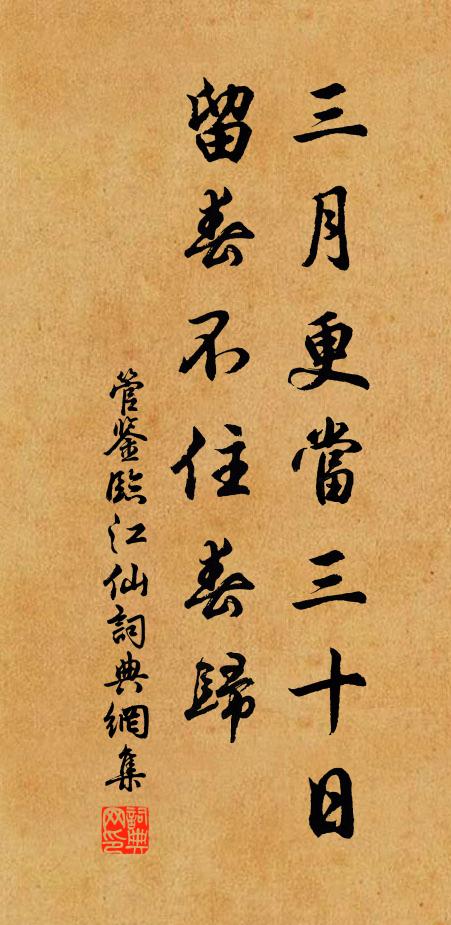 三月更當三十日
留春不住春歸
管鑒臨江仙詞典網集
詞典网印